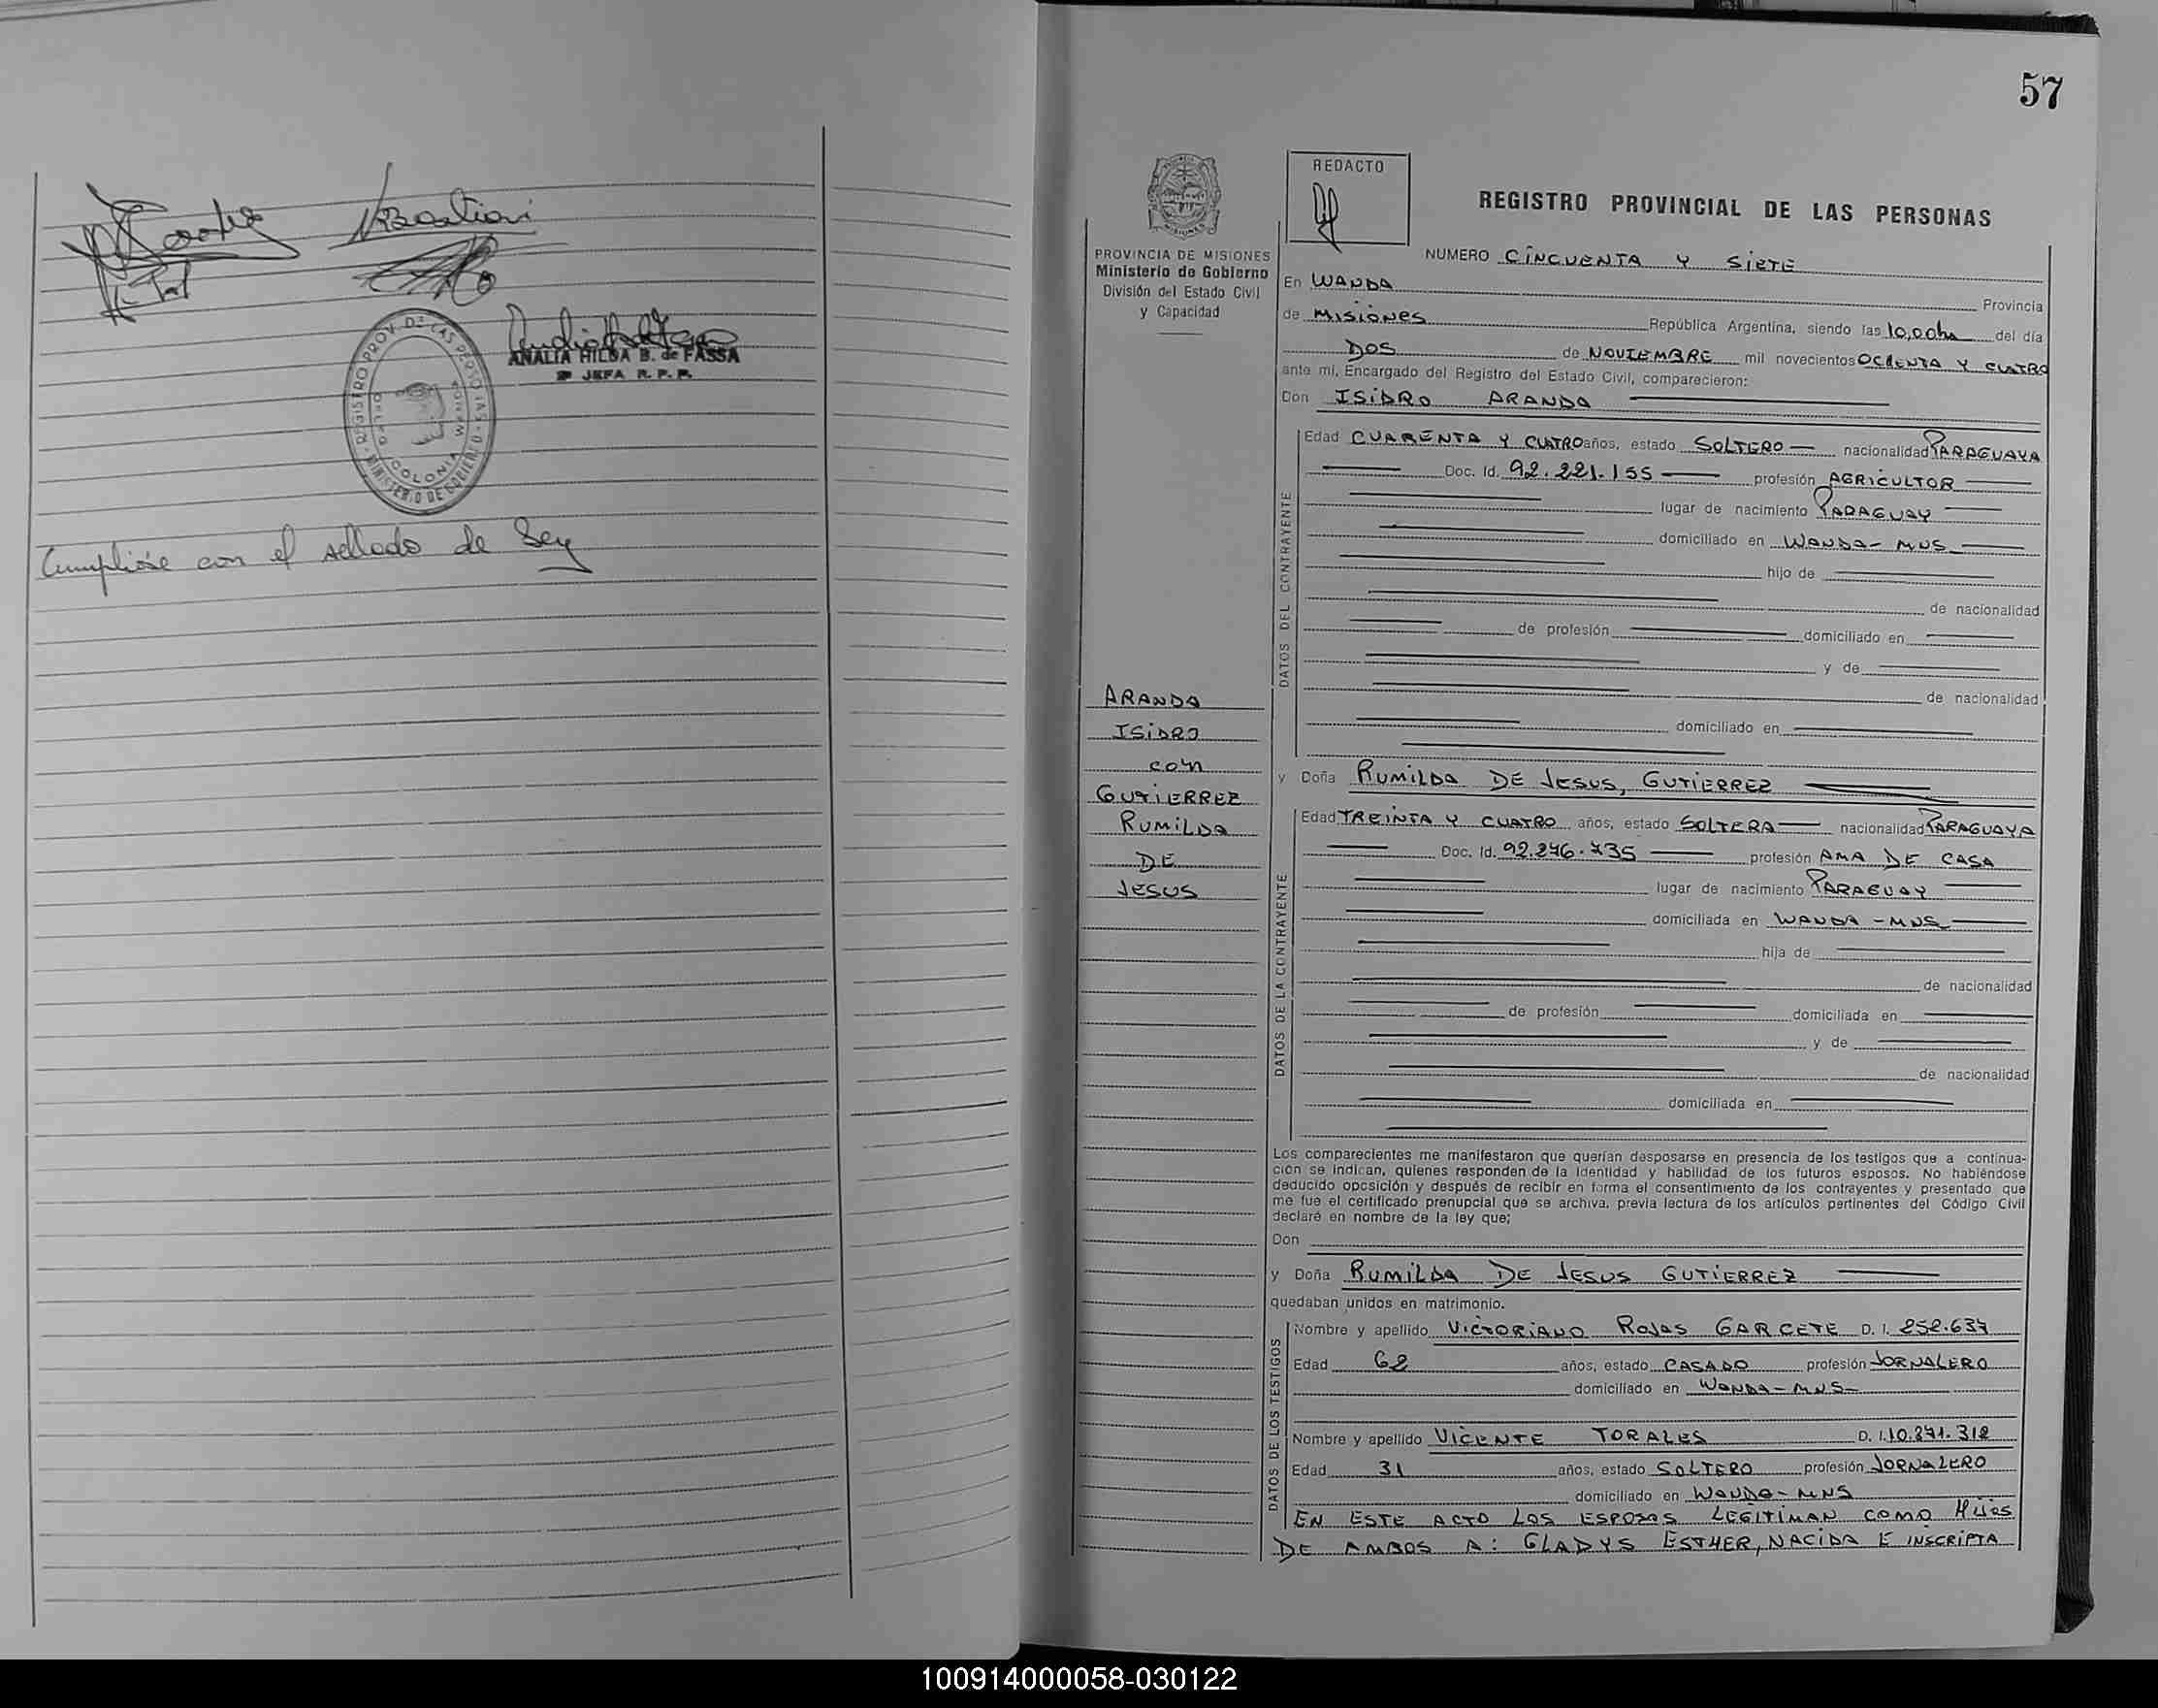 ANALIA HILDA B. de FASSA
JEFA R. P. P.
REGISTRO PROV. DE LAS PERSONAS
MINISTERIO DE GOBIERNO
COLONIA WANDA
Cumplióse con el sellado de Ley
57
REDACTO
REGISTRO PROVINCIAL DE LAS PERSONAS
PROVINCIA DE MISIONES
Ministerio de Gobierno
División del Estado Civil
y Capacidad
NUMERO CINCUENTA Y SIETE
En WANDA Provincia
de MISIONES República Argentina, siendo las 10,00hs del día
DOS de NOVIEMBRE mil novecientos OCHENTA Y CUATRO
ante mi, Encargado del Registro del Estado Civil, comparecieron:
Don ISIDRO ARANDA
DATOS DEL CONTRAYENTE
Edad CUARENTA Y CUATRO años, estado SOLTERO nacionalidad PARAGUAYA
Doc. Id. 92.221.155 profesión AGRICULTOR
lugar de nacimiento PARAGUAY
domiciliado en WANDA - MNS
hijo de
de nacionalidad
de profesión domiciliado en
y de
de nacionalidad
domiciliado en
ARANDA
ISIDRO
con
GUTIERREZ
RUMILDA
DE
JESUS
y Doña RUMILDA DE JESUS, GUTIERREZ
DATOS DE LA CONTRAYENTE
Edad TREINTA Y CUATRO años, estado SOLTERA nacionalidad PARAGUAYA
Doc. Id. 92.246.735 profesión AMA DE CASA
lugar de nacimiento PARAGUAY
domiciliada en WANDA - MNS
hija de
de nacionalidad
de profesión domiciliada en
y de
de nacionalidad
domiciliada en
Los comparecientes me manifestaron que querían desposarse en presencia de los testigos que a continua-
ción se indican, quienes responden de la identidad y habilidad de los futuros esposos. No habiéndose
deducido oposición y después de recibir en forma el consentimiento de los contrayentes y presentado que
me fue el certificado prenupcial que se archiva, previa lectura de los artículos pertinentes del Código Civil
declaré en nombre de la ley que;
Don
y Doña RUMILDA DE JESUS GUTIERREZ
quedaban unidos en matrimonio.
DATOS DE LOS TESTIGOS
Nombre y apellido VICTORIANO ROJAS GARCETE D. I. 252.637
Edad 62 años, estado CASADO profesión JORNALERO
domiciliado en WANDA - MNS
Nombre y apellido VICENTE TORALES D. I. 10.271.312
Edad 31 años, estado SOLTERO profesión JORNALERO
domiciliado en WANDA - MNS
EN ESTE ACTO LOS ESPOSOS LEGITIMAN COMO HIJOS
DE AMBOS A: GLADYS ESTHER, NACIDA E INSCRIPTA
100914000058-030122